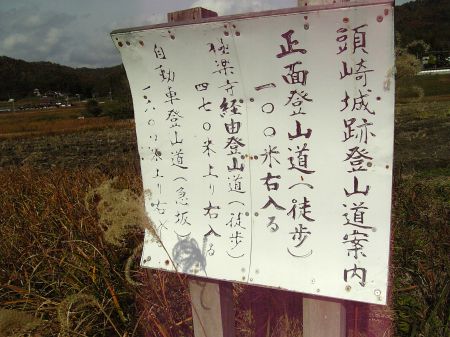 頭崎城跡登山道案内
正面登山道(徒歩)
一〇〇米右入る
極楽寺経由登山道(徒歩)
四七〇米より右入る
自動車登山道(急坂)
一六〇〇米より右入